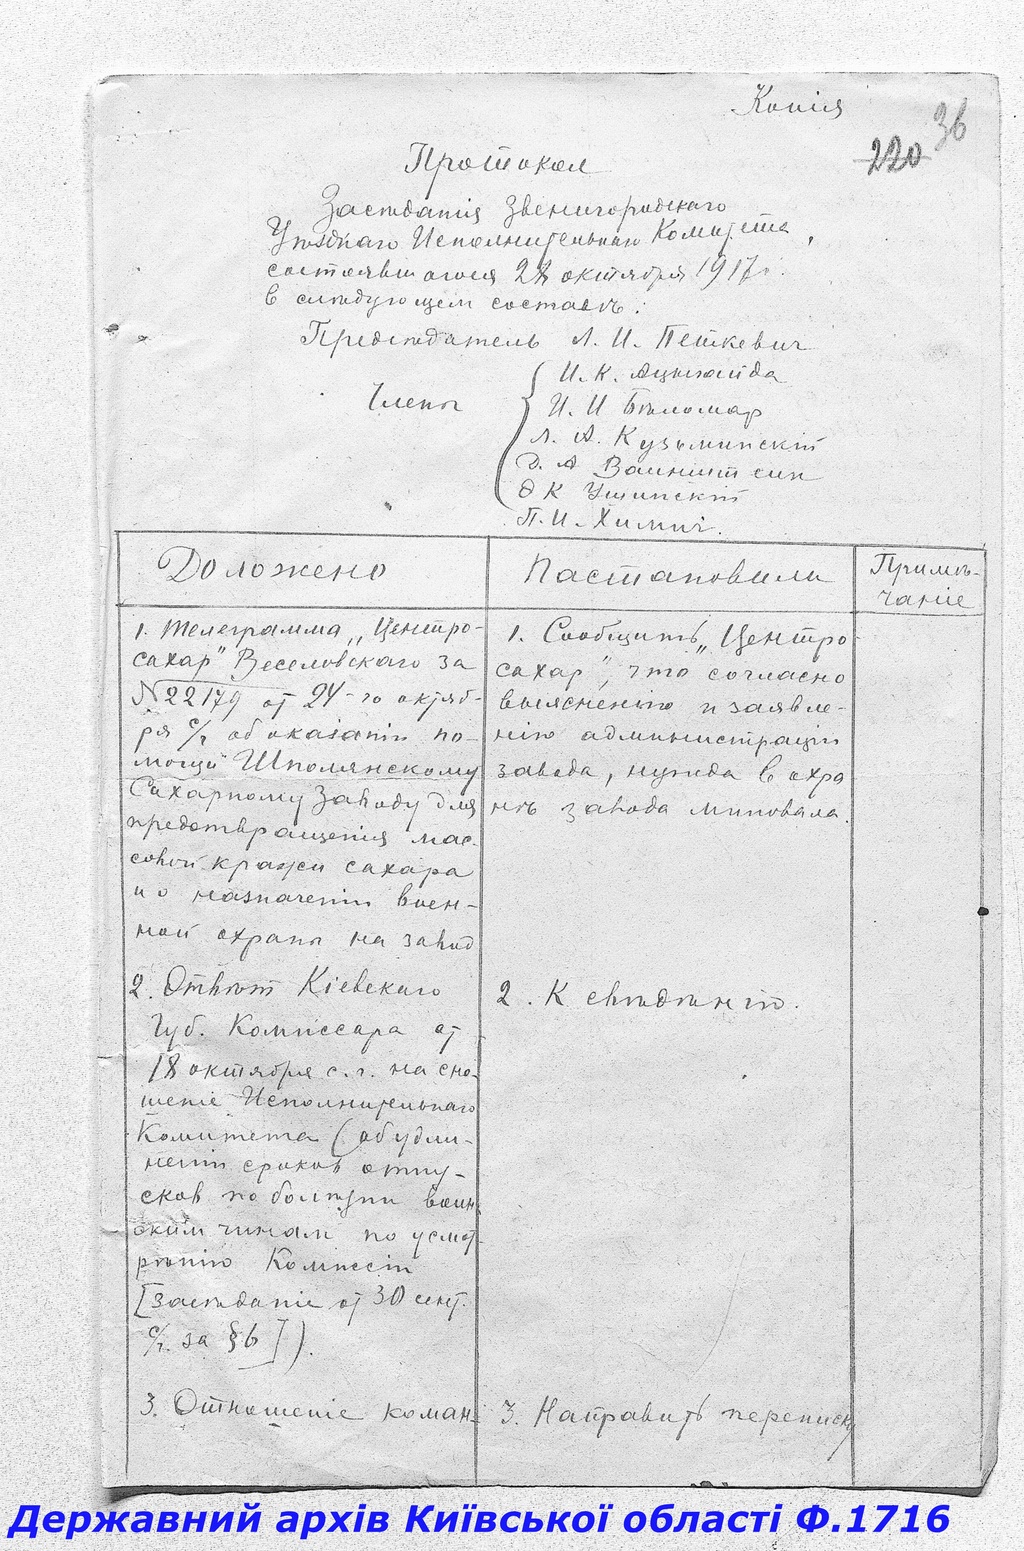 Копія
36
220
Протокол
Заседанія Звенигородскаго
Уѣзднаго Исполнительнаго Комитета,
состоявшагося 28 октября 1917 г.
в слѣдующем составѣ:
Предсѣдатель Л. И. Петкевич
Члены
И. К.
И. И Бѣломар
Л. А. Кузьминскій
Д. А Ваинштеин
Ф К Ушинскій
П. И. Химич.
Доложено
Пастановили
Примѣ-
чаніе
1. Телеграмма „Центро-
сахар" Веселовскаго за
№ 22179 от 24-го октяб-
ря с/г об оказаніи по-
мощи Шполянскому
Сахарному Заводу для
предотвращенія мас-
совой кражи сахара
и о назначеніи воен-
ной охраны на завод
1. Сообщить „Центро-
сахар", что согласно
выясненію и заявле-
нію администраціи
завода, нужда в охра
нѣ завода миновала.
2. Отвѣт Кіевскаго
Губ. Комиссара от
18 октября с. г. на сно-
шеніе Исполнительнаго
Комитета (об удли-
неніи сроков отпу-
сков по болѣзни воин-
ским чинам по усмот
рѣнію Комиссіи
[заседаніе от 30 сент.
с/г. за § 6]).
2. К свѣдѣнію.
3. Отношеніе коман-
3. Направить переписку
Державний архів Київської області Ф.1716